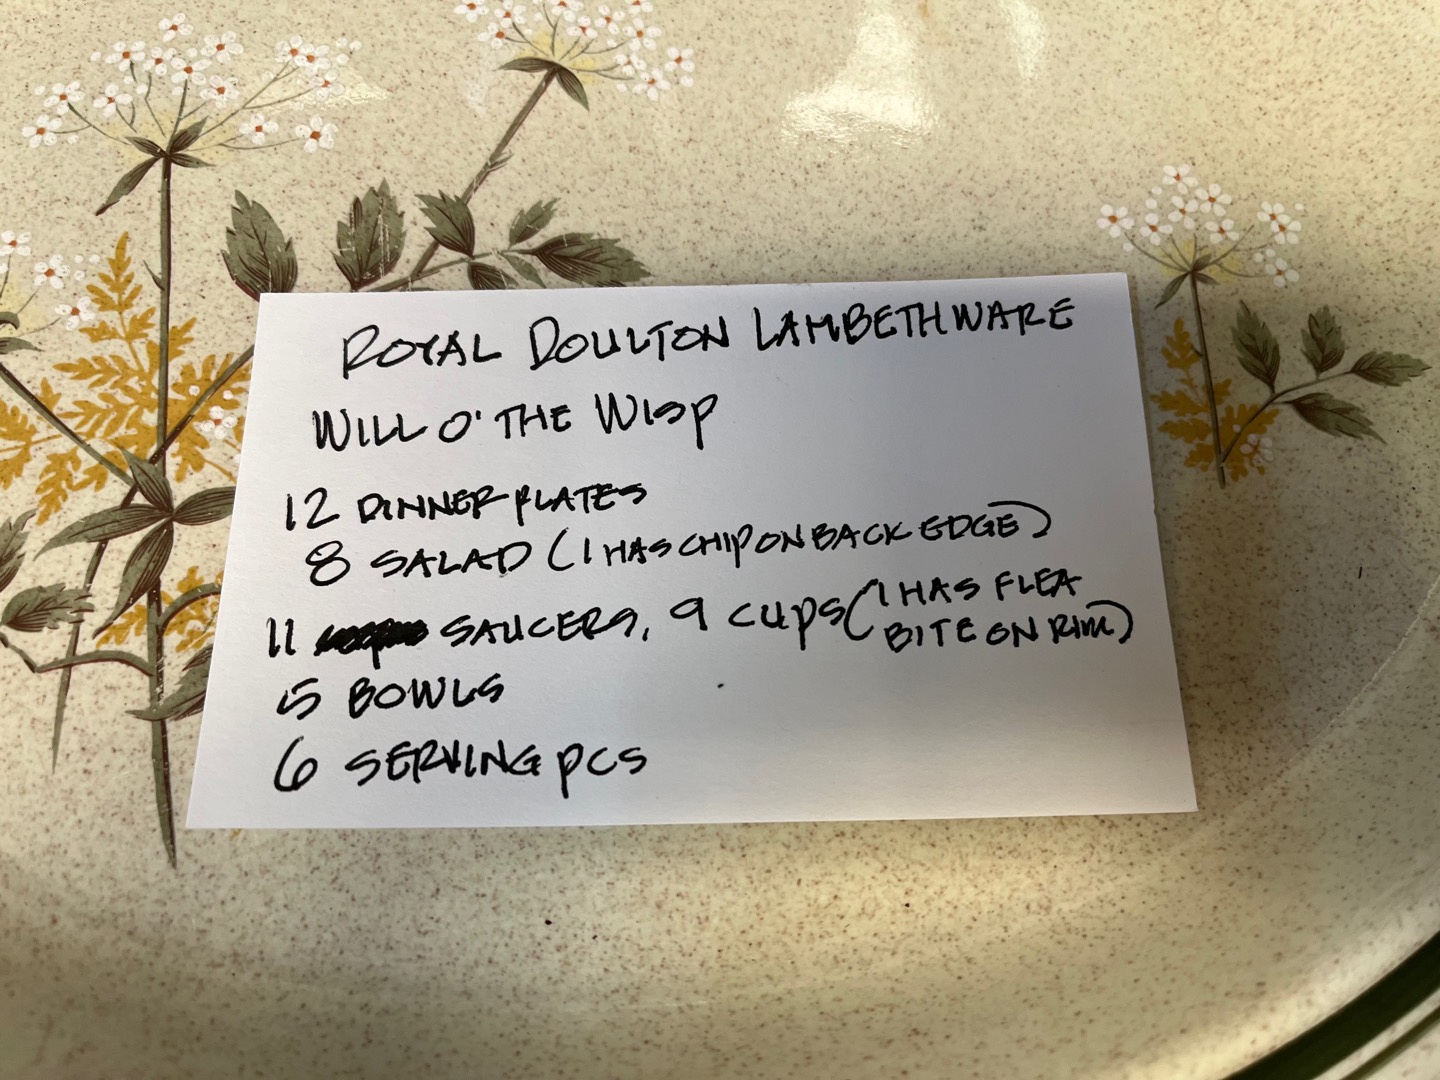 ROYAL DOULTON LAMBETHWARE
WILL O' THE WISP
12 DINNER PLATES
8 SALAD (1 HAS CHIP ON BACK EDGE)
11 SAUCERS, 9 CUPS (1 HAS FLEA
BITE ON RIM)
5 BOWLS
6 SERVING PCS